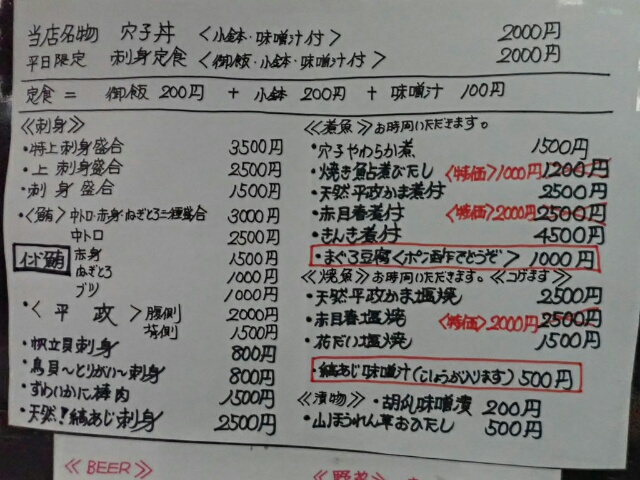 当店名物 穴子丼 〈小鉢・味噌汁付〉 2000円
平日限定 刺身定食〈御飯・小鉢・味噌汁付〉 2000円
定食 = 御飯 200円 + 小鉢 200円 + 味噌汁 100円
《刺身》
・特上刺身盛合 3500円
・上 刺身盛合 2500円
・刺身盛合 1500円
・〈鮪〉中トロ・赤身・ねぎとろ三種盛合 3000円
中トロ 2500円
インド鮪 赤身 1500円
ねぎとろ 1000円
ブツ 1000円
・〈平政〉腹側 2000円
背側 1500円
・帆立貝刺身 800円
・鳥貝〜とりがい〜刺身 800円
・ずわいかに棒肉 1500円
・天然!縞あじ刺身 2500円
《煮魚》お時間いただきます。
・穴子やわらか煮 1500円
・焼き鮎煮びたし 〈特価〉1000円 1200円
・天然平政かま煮付 2500円
・赤目春煮付 〈特価〉2000円 2500円
・きんき煮付 4500円
・まぐろ豆腐〈ポン酢でどうぞ〉 1000円
《焼魚》お時間いただきます。《コゲます》
・天然平政かま塩焼 2500円
・赤目春塩焼 〈特価〉2000円 2500円
・花だい塩焼 1500円
・縞あじ味噌汁(こしょうが入ります) 500円
《漬物》・胡瓜味噌漬 200円
・山ほうれん草おひたし 500円
《BEER》
《野菜》